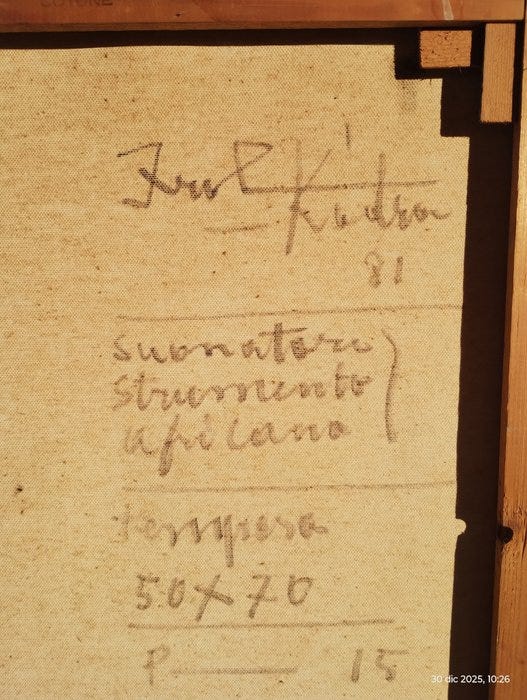 COTONE
81
suonatore
strumento
africano
tempera
50x70
P — 15
30 dic 2025, 10:26